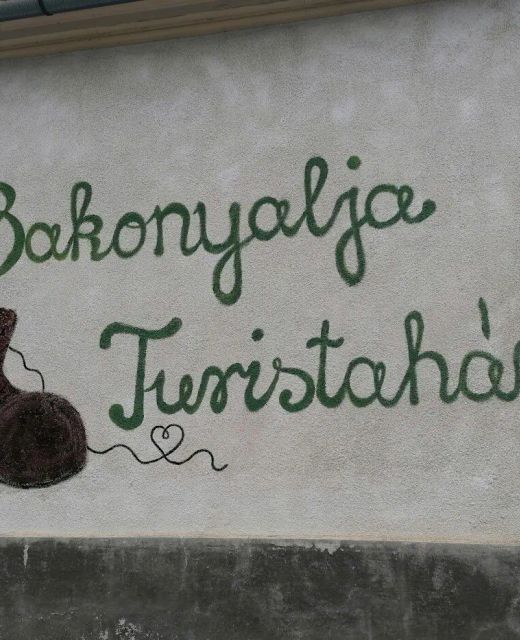 Bakonyalja
Turistahá